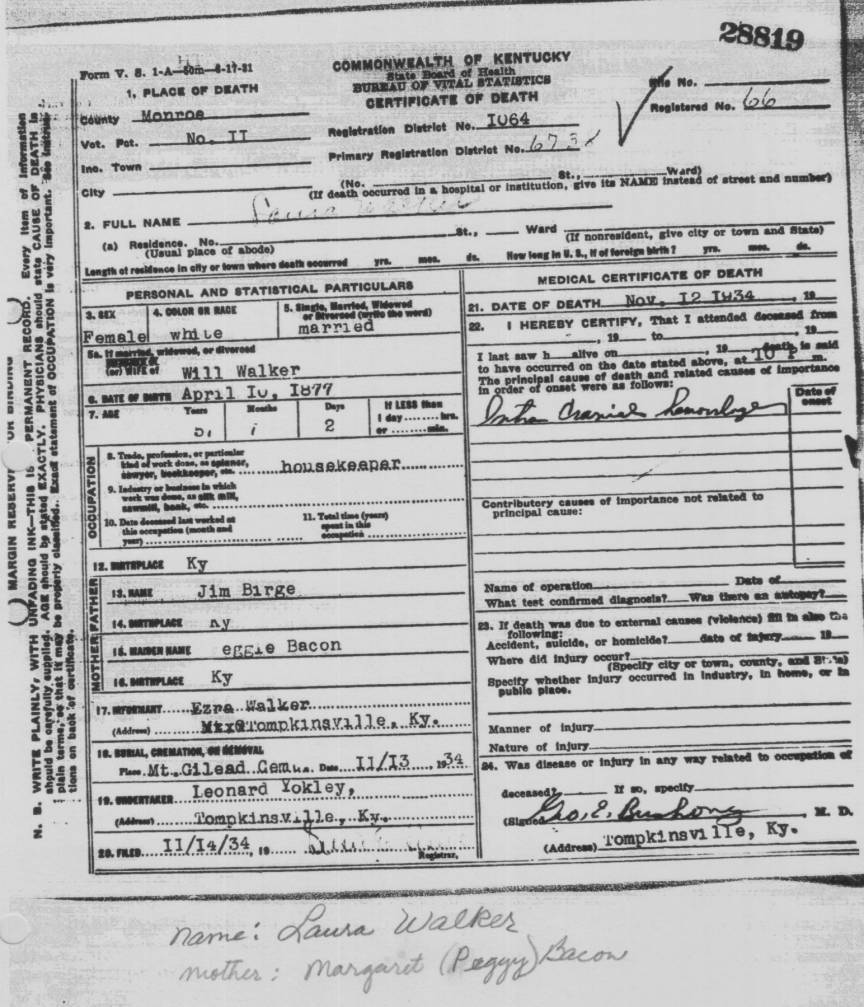 28819
Form V. S. 1-A—50m—6-17-31
COMMONWEALTH OF KENTUCKY
State Board of Health
BUREAU OF VITAL STATISTICS
CERTIFICATE OF DEATH
File No.
Registered No. 66
1. PLACE OF DEATH
County Monroe
Vot. Pct. No. II
Inc. Town
City
Registration District No. I064
Primary Registration District No.
(No. St., Ward)
(If death occurred in a hospital or institution, give its NAME instead of street and number)
2. FULL NAME Laura Walker
(a) Residence. No. St., Ward
(Usual place of abode) (If nonresident, give city or town and State)
Length of residence in city or town where death occurred yrs. mos. ds. How long in U. S., if of foreign birth? yrs. mos. ds.
PERSONAL AND STATISTICAL PARTICULARS
3. SEX 4. COLOR OR RACE 5. Single, Married, Widowed
or Divorced (write the word)
Female white married
5a. If married, widowed, or divorced
HUSBAND of
(or) WIFE of Will Walker
6. DATE OF BIRTH April I0, I877
7. AGE Years Months Days If LESS than
1 day hrs.
or min.
2
OCCUPATION
8. Trade, profession, or particular
kind of work done, as spinner,
sawyer, bookkeeper, etc. housekeeper
9. Industry or business in which
work was done, as silk mill,
sawmill, bank, etc.
10. Date deceased last worked at
this occupation (month and
year)
11. Total time (years)
spent in this
occupation
12. BIRTHPLACE Ky
FATHER
13. NAME Jim Birge
14. BIRTHPLACE Ky
MOTHER
15. MAIDEN NAME eggie Bacon
16. BIRTHPLACE Ky
17. INFORMANT Ezra Walker
(Address) Tompkinsville, Ky.
18. BURIAL, CREMATION, OR REMOVAL
Place Mt. Gilead Cem Date II/I3 , 1934
19. UNDERTAKER Leonard Yokley,
(Address) Tompkinsville, Ky.
20. FILED II/I4/34, 19
Registrar.
MEDICAL CERTIFICATE OF DEATH
21. DATE OF DEATH Nov. I2 I934 , 19
22. I HEREBY CERTIFY, That I attended deceased from
, 19 to , 19
I last saw h alive on , 19 death is said
to have occurred on the date stated above, at I0 P m.
The principal cause of death and related causes of importance
in order of onset were as follows:
Date of
onset
Intra Cranial hemorrhage
Contributory causes of importance not related to
principal cause:
Name of operation Date of
What test confirmed diagnosis? Was there an autopsy?
23. If death was due to external causes (violence) fill in also the
following:
Accident, suicide, or homicide? date of injury 19
Where did injury occur?
(Specify city or town, county, and State)
Specify whether injury occurred in industry, in home, or in
public place.
Manner of injury
Nature of injury
24. Was disease or injury in any way related to occupation of
deceased? If so, specify
(Signed) Geo. E. Bushong M. D.
(Address) Tompkinsville, Ky.
MARGIN RESERVED FOR BINDING
N. B. WRITE PLAINLY, WITH UNFADING INK—THIS IS PERMANENT RECORD. Every item of information
should be carefully supplied. AGE should be stated EXACTLY. PHYSICIANS should state CAUSE OF DEATH in
plain terms, so that it may be properly classified. Exact statement of OCCUPATION is very important. See instruc-
tions on back of certificate.
name: Laura Walker
mother: Margaret (Peggy) Bacon